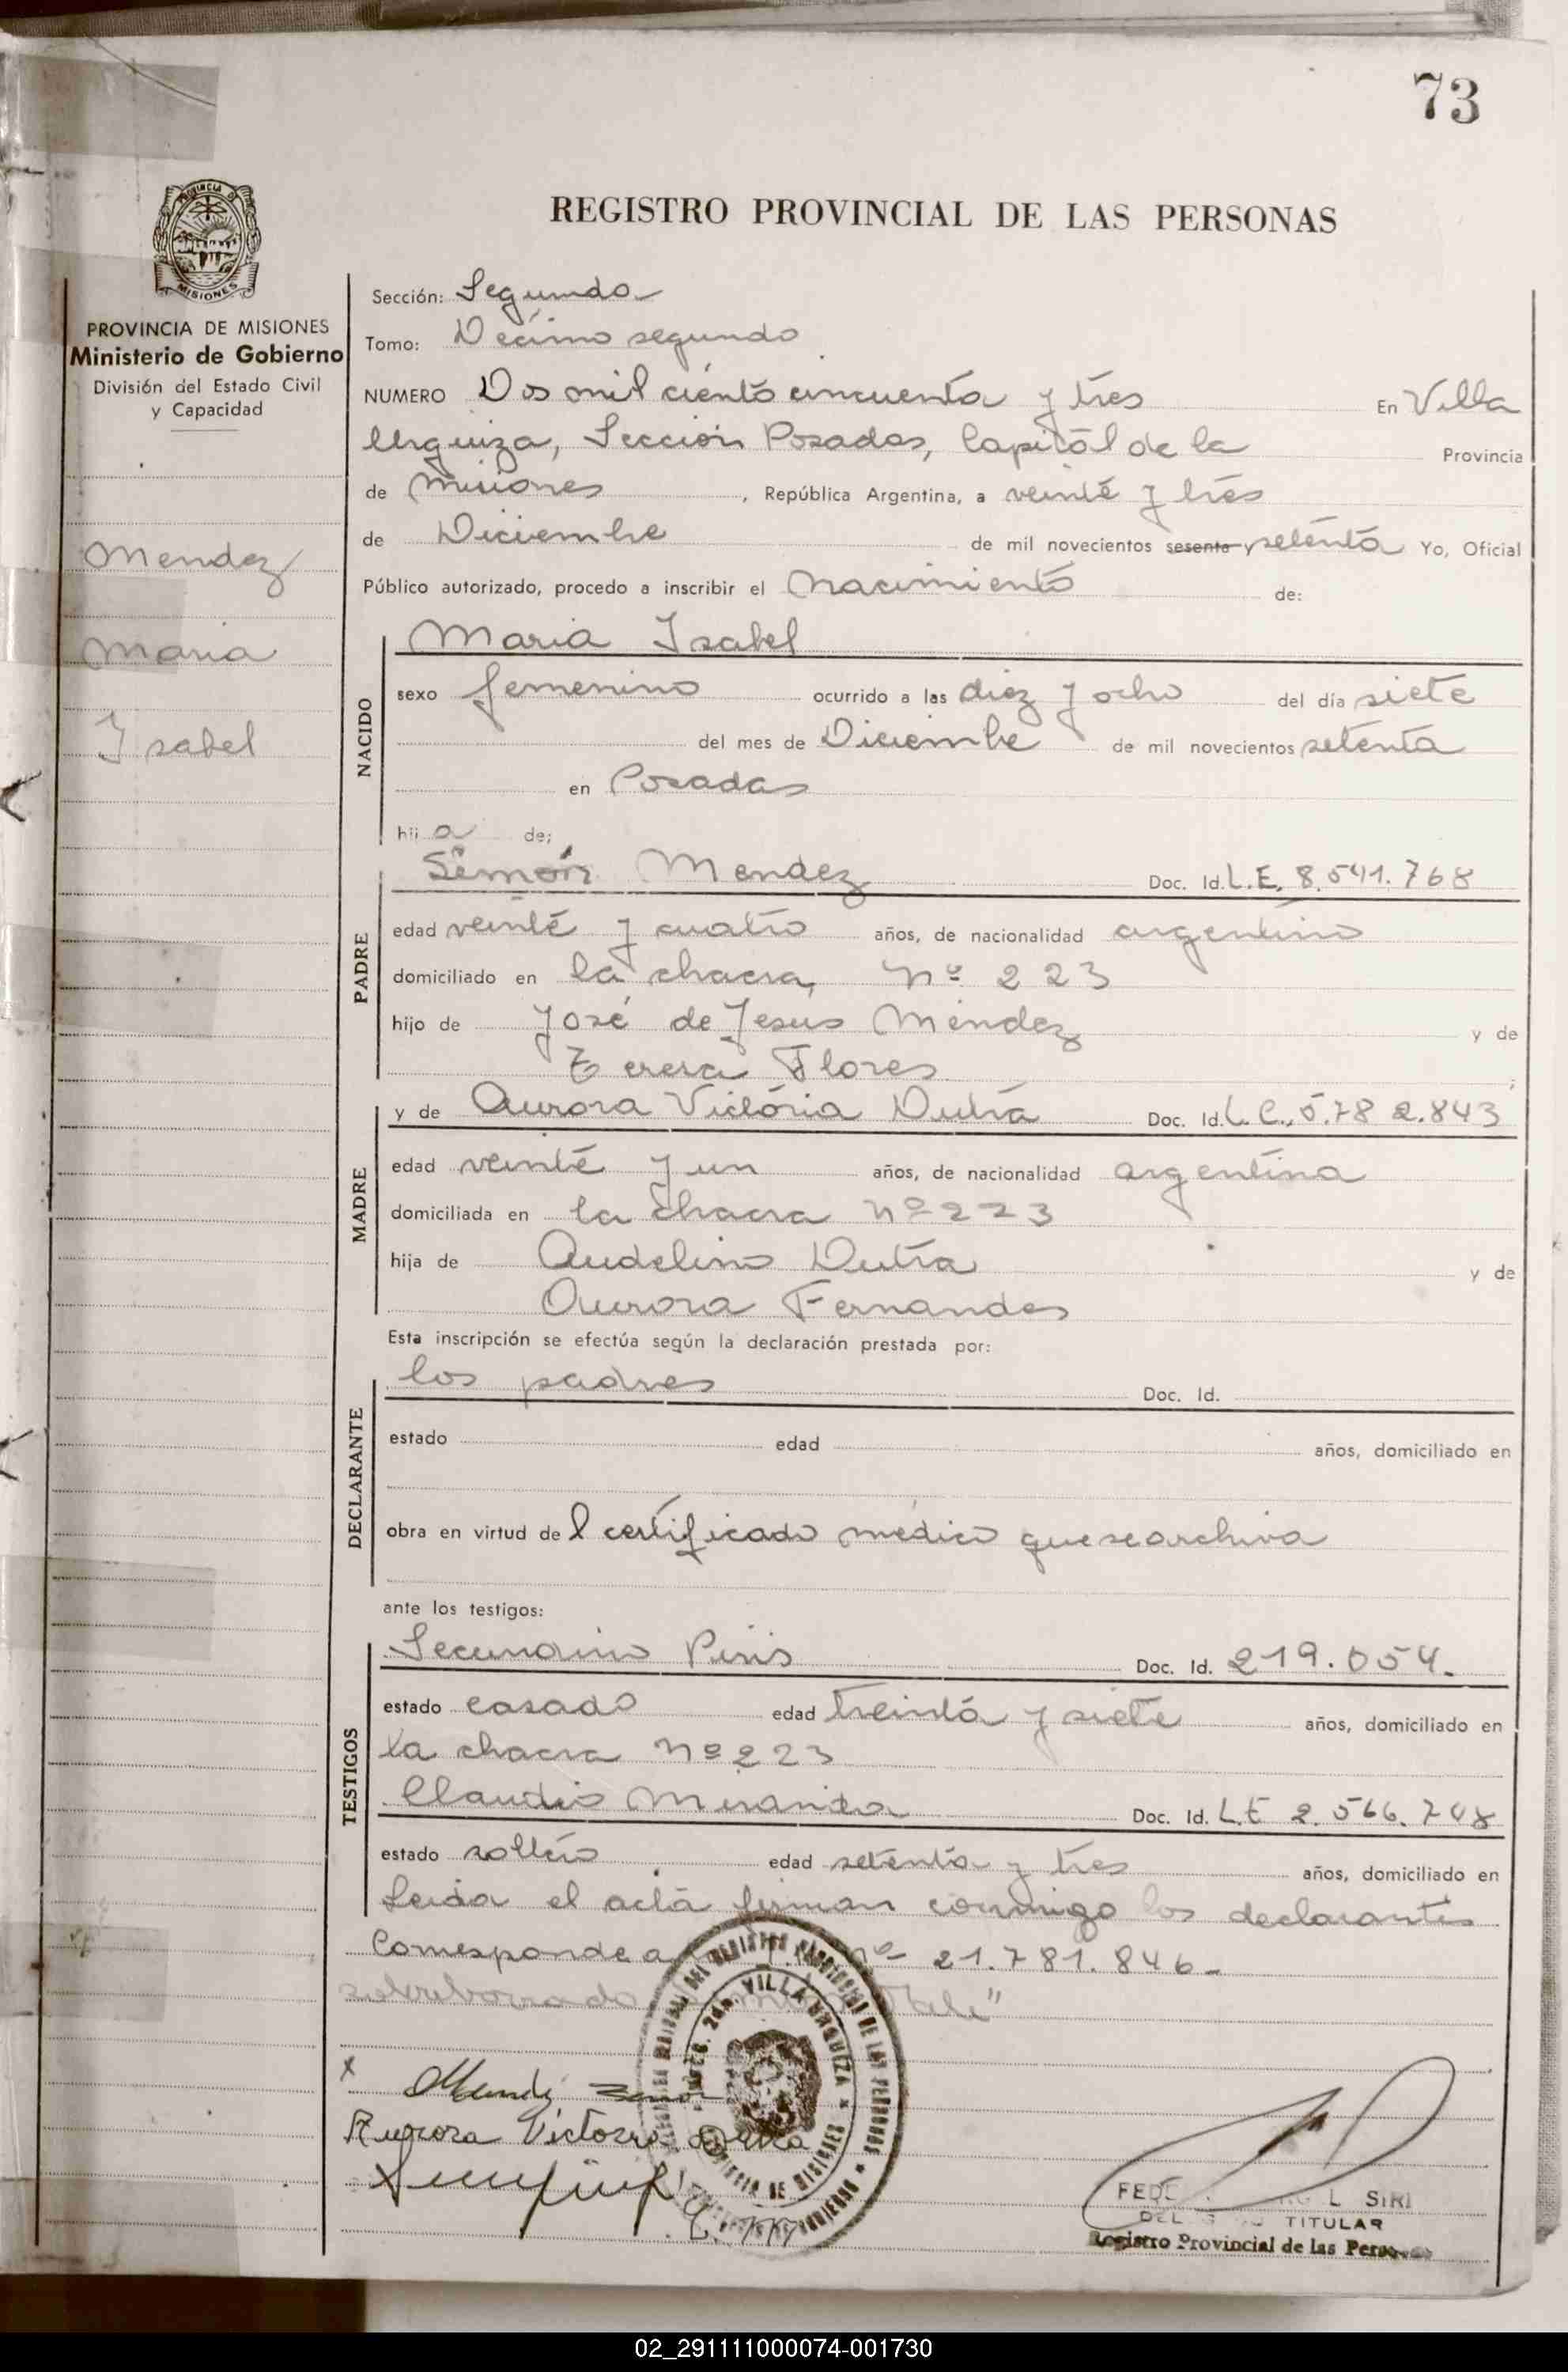 73
REGISTRO PROVINCIAL DE LAS PERSONAS
MISIONES
PROVINCIA DE MISIONES
Ministerio de Gobierno
División del Estado Civil
y Capacidad
Mendez
Maria
Isabel
Sección: Segundo
Tomo: Decimo segundo
NUMERO Dos mil ciento cincuenta y tres En Villa
Urquiza, Sección Posadas, Capital de la Provincia
de Misiones, República Argentina, a veinte y tres
de Diciembre de mil novecientos sesenta y setenta Yo, Oficial
Público autorizado, procedo a inscribir el Nacimiento de:
NACIDO
Maria Isabel
sexo femenino ocurrido a las diez y ocho del día siete
del mes de Diciembre de mil novecientos setenta
en Posadas
hij a de;
PADRE
Simón Mendez Doc. Id. L.E. 8.541.768
edad veinte y cuatro años, de nacionalidad argentino
domiciliado en la chacra Nº 223
hijo de José de Jesus Mendez y de
Teresa Flores ;
MADRE
y de Aurora Victoria Dutra Doc. Id. L.C. 5.782.843
edad veinte y un años, de nacionalidad argentina
domiciliada en la chacra Nº 223
hija de Audelino Dutra y de
Aurora Fernandes
Esta inscripción se efectúa según la declaración prestada por:
DECLARANTE
los padres Doc. Id.
estado edad años, domiciliado en
obra en virtud de l certificado medico que se archiva
ante los testigos:
TESTIGOS
Secundino Piris Doc. Id. 219.054.
estado casado edad treinta y siete años, domiciliado en
la chacra Nº 223
Claudio Miranda Doc. Id. L.E 2.566.748
estado soltero edad setenta y tres años, domiciliado en
Leida el acta firman conmigo los declarantes
Corresponde a Nº 21.781.846-
sobreborrado
VILLA URQUIZA
Aurora Victoria Dutra
L SIRI
TITULAR
Registro Provincial de las Personas
02_291111000074-001730